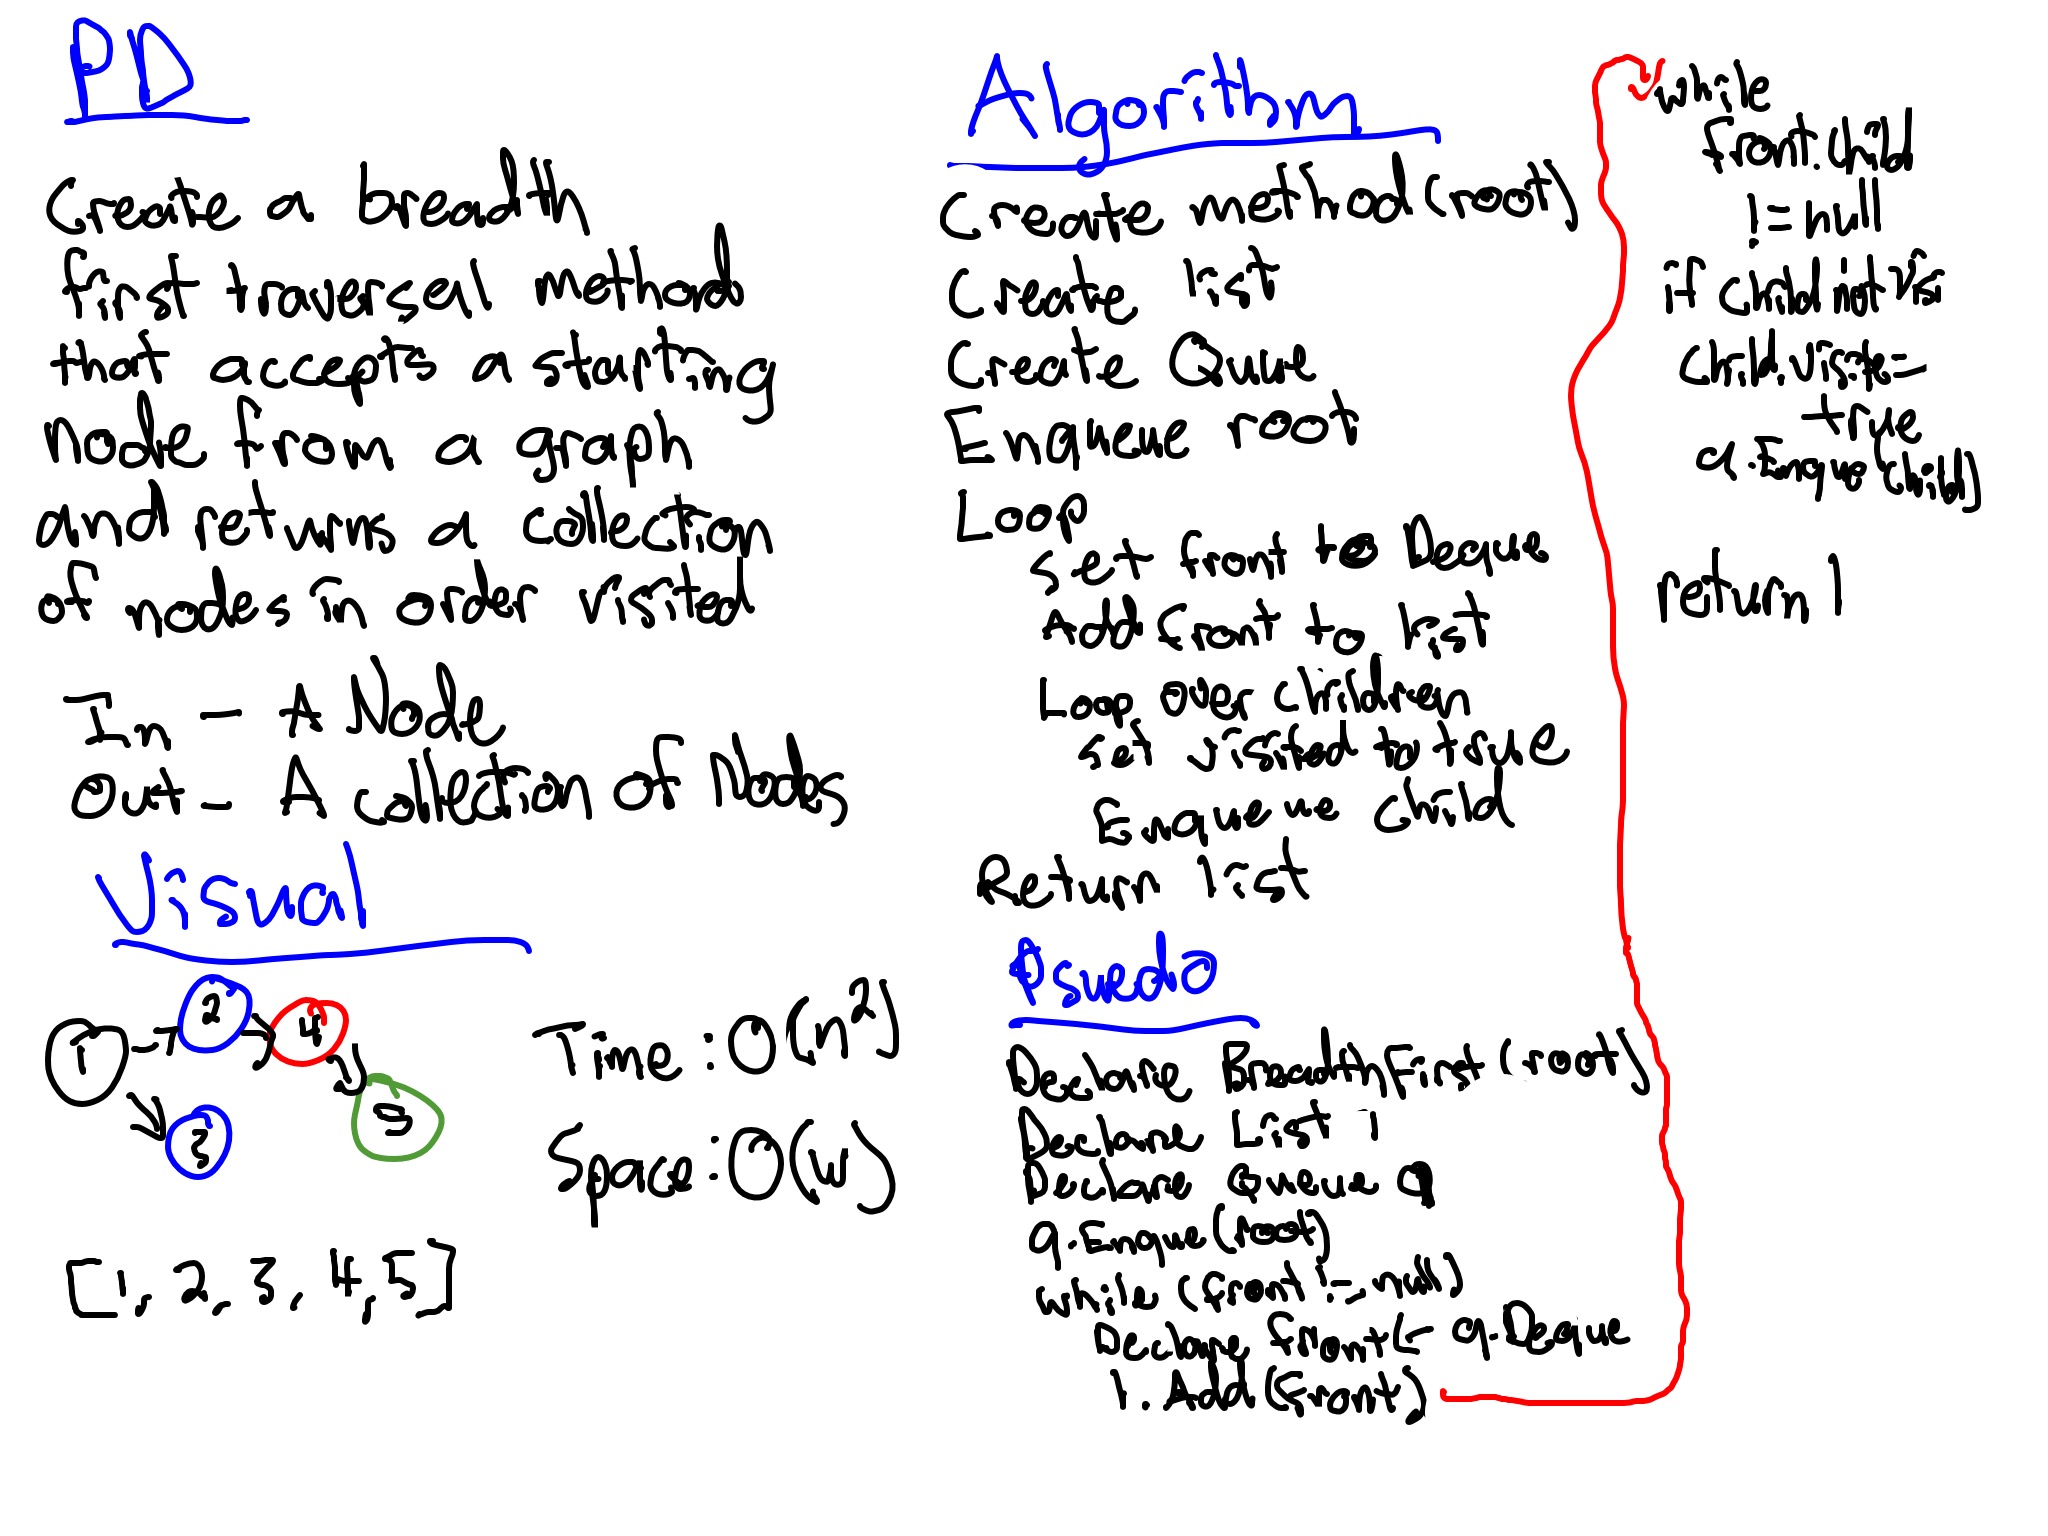 PD
Create a breadth
first traversal method
that accepts a starting
node from a graph
and returns a collection
of nodes in order visited
In - A Node
Out - A collection of Nodes
Visual
1
2
4
3
5
[1, 2, 3, 4, 5]
Time: O(n²)
Space: O(w)
Algorithm
Create method (root)
Create list
Create Quue
Enqueue root
Loop
set front to Deque
Add front to list
Loop over children
set visited to true
Enqueue child
Return list
Psuedo
Declare BreadthFirst (root)
Declare List l
Declare Queue q
q.Enque(root)
while (front != null)
Declare front ← q.Deque
l.Add(front)
while
front.child
!= null
if child not visi
child.visite =
true
q.Enque(child)
return l